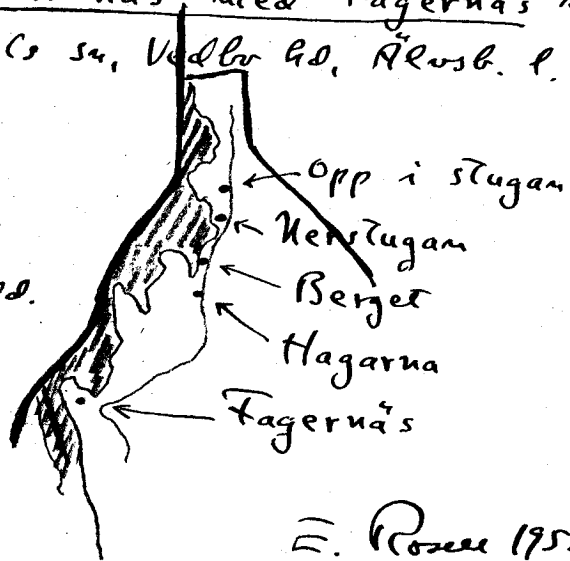 med Fagernäs
sn, Vedbo hd, Älvsb. l.
Opp i stugan
Nerstugan
Berget
Hagarna
Fagernäs
E. Rosell 195